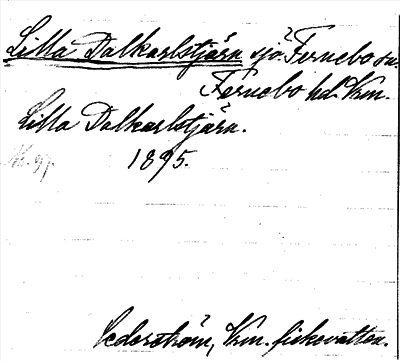 Lilla Dalkarlstjärn sjö Fernebo sn.
Fernebo hd. Vrm.
Lilla Dalkarlstjärn.
1895.
Cederström, Vrm. fiskevatten.